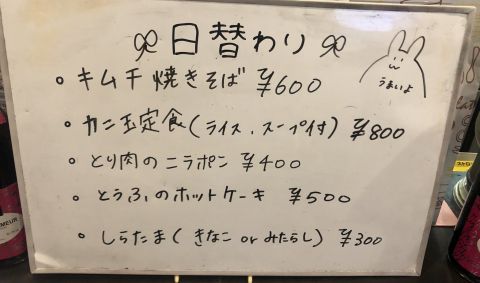 日替わり
うまいよ
• キムチ焼きそば ¥600
• カニ玉定食(ライス、スープ付) ¥800
• とり肉のニラポン ¥400
• とうふのホットケーキ ¥500
• しらたま(きなこ or みたらし) ¥300
MEUR